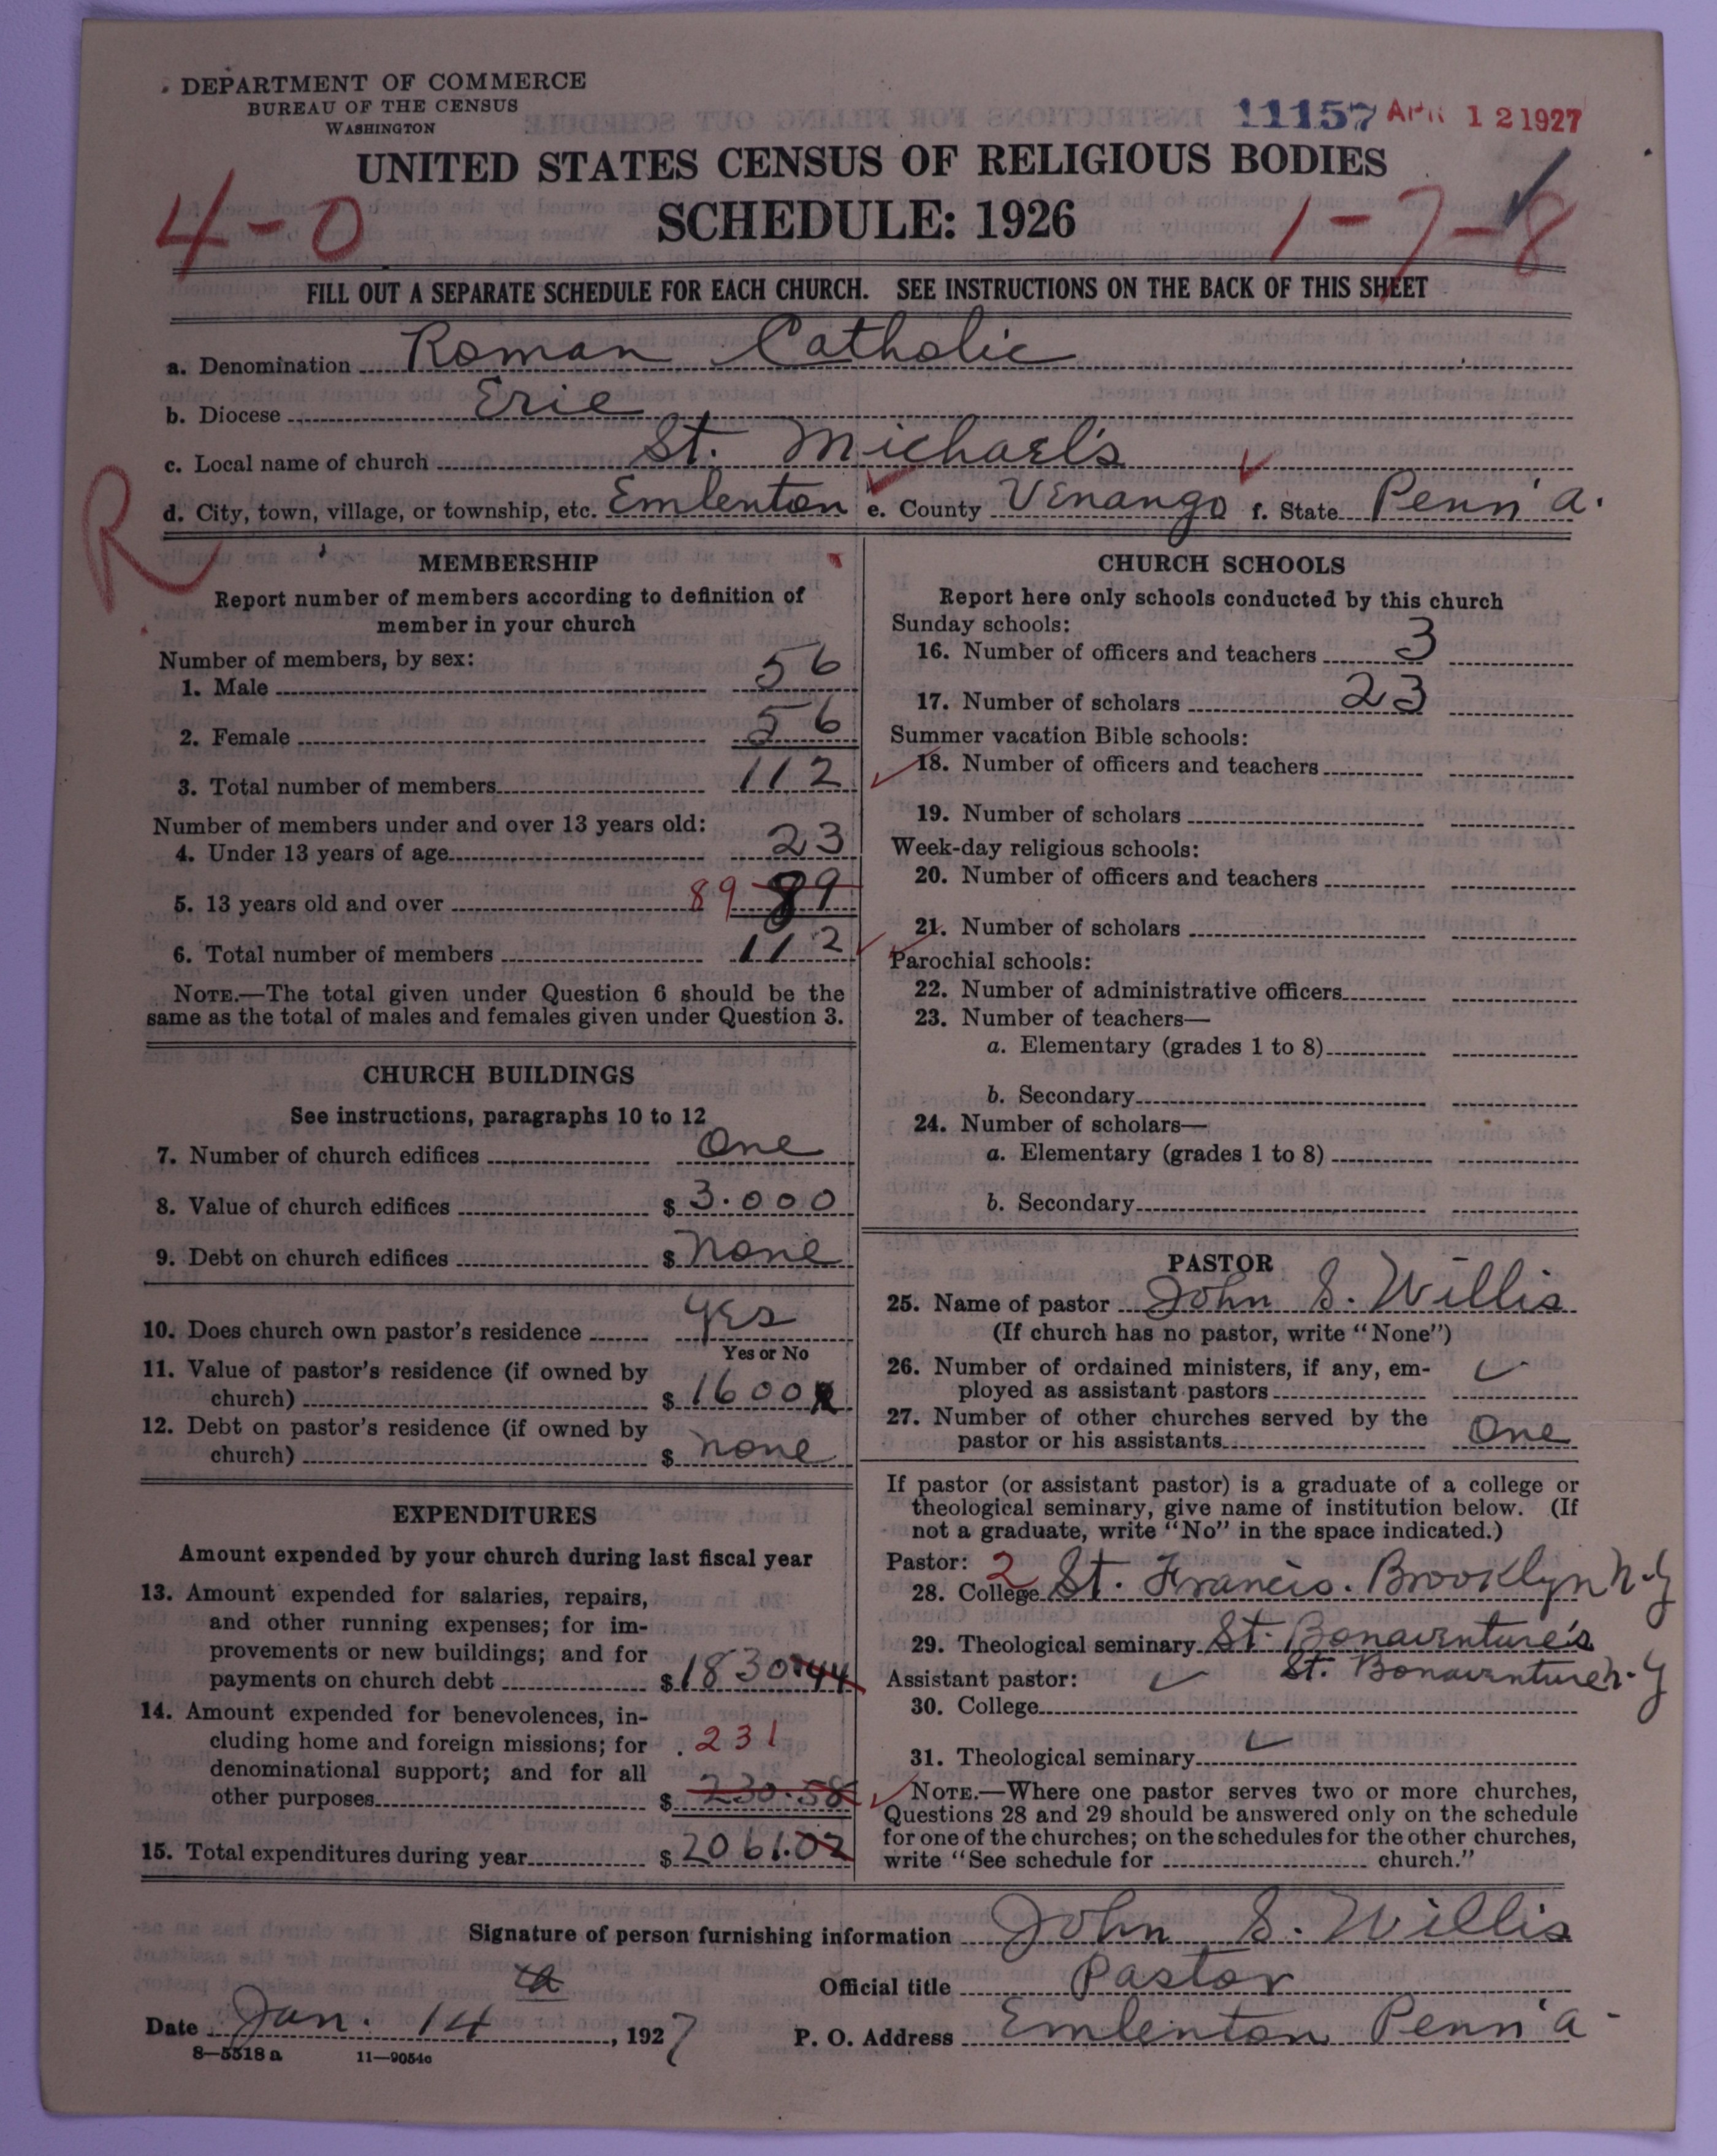 DEPARTMENT OF COMMERCE
BUREAU OF THE CENSUS
WASHINGTON
11157 APR 12 1927
UNITED STATES CENSUS OF RELIGIOUS BODIES
SCHEDULE: 1926
4-0
1-7-8
FILL OUT A SEPARATE SCHEDULE FOR EACH CHURCH. SEE INSTRUCTIONS ON THE BACK OF THIS SHEET
a. Denomination Roman Catholic
b. Diocese Erie
c. Local name of church St. Michael's
d. City, town, village, or township, etc. Emlenton e. County Venango f. State Penn'a.
R
MEMBERSHIP
Report number of members according to definition of
member in your church
Number of members, by sex:
1. Male 56
2. Female 56
3. Total number of members 112
Number of members under and over 13 years old:
4. Under 13 years of age 23
5. 13 years old and over 89 89
6. Total number of members 112
NOTE.—The total given under Question 6 should be the
same as the total of males and females given under Question 3.
CHURCH BUILDINGS
See instructions, paragraphs 10 to 12
7. Number of church edifices One
8. Value of church edifices $ 3.000
9. Debt on church edifices $ none
10. Does church own pastor's residence yes
Yes or No
11. Value of pastor's residence (if owned by
church) $ 1600
12. Debt on pastor's residence (if owned by
church) $ none
EXPENDITURES
Amount expended by your church during last fiscal year
13. Amount expended for salaries, repairs,
and other running expenses; for im-
provements or new buildings; and for
payments on church debt $ 1830.44
14. Amount expended for benevolences, in-
cluding home and foreign missions; for 231
denominational support; and for all
other purposes $ 230.58
15. Total expenditures during year $ 2061.02
CHURCH SCHOOLS
Report here only schools conducted by this church
Sunday schools:
16. Number of officers and teachers 3
17. Number of scholars 23
Summer vacation Bible schools:
18. Number of officers and teachers
19. Number of scholars
Week-day religious schools:
20. Number of officers and teachers
21. Number of scholars
Parochial schools:
22. Number of administrative officers
23. Number of teachers—
a. Elementary (grades 1 to 8)
b. Secondary
24. Number of scholars—
a. Elementary (grades 1 to 8)
b. Secondary
PASTOR
25. Name of pastor John S. Willis
(If church has no pastor, write "None")
26. Number of ordained ministers, if any, em-
ployed as assistant pastors
27. Number of other churches served by the
pastor or his assistants One
If pastor (or assistant pastor) is a graduate of a college or
theological seminary, give name of institution below. (If
not a graduate, write "No" in the space indicated.)
Pastor: 2
28. College St. Francis. Brooklyn N-Y
29. Theological seminary St. Bonaventure's
Assistant pastor: St. Bonaventure N-Y
30. College
31. Theological seminary
NOTE.—Where one pastor serves two or more churches,
Questions 28 and 29 should be answered only on the schedule
for one of the churches; on the schedules for the other churches,
write "See schedule for church."
Signature of person furnishing information John S. Willis
Official title Pastor
Date Jan. 14, 1927 P. O. Address Emlenton Penn'a
8—5518 a 11—9054c